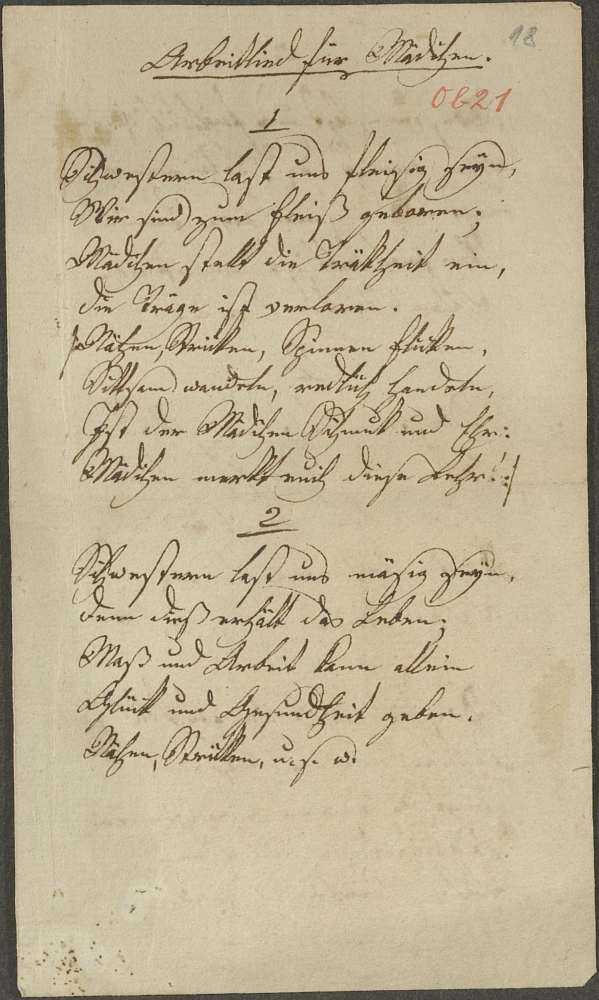 18
Arbeitslied für Mädchen.
0621
1
Schwestern last uns fleisig seyn,
Wir sind zum Fleiß geboren;
Mädchen stellt die Trätheit ein,
die Träge ist verloren.
|: Nähen, Stricken, Spinnen flicken,
Sittsam wandeln, redlich handeln,
Ist der Mädchen Schmuck und Ehr:
Mädchen merkt euch diese Lehr! :|
2
Schwestern last uns mäsig seyn,
denn dieß erhält das Leben;
Maß und Arbeit kann allein
Glück und Gesundheit geben.
Nähen, Stricken, u. s. w.